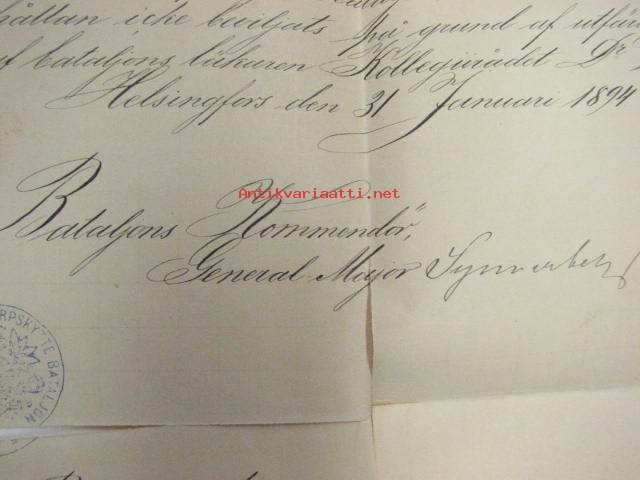 hållan icke beviljats på grund af utfär
af bataljons läkaren Kollegiirådet Dr
Helsingfors den 31 Januari 1894
Antikvariaatti.net
Bataljons Kommendör,
General Major
RPSKYTTE BATALJON